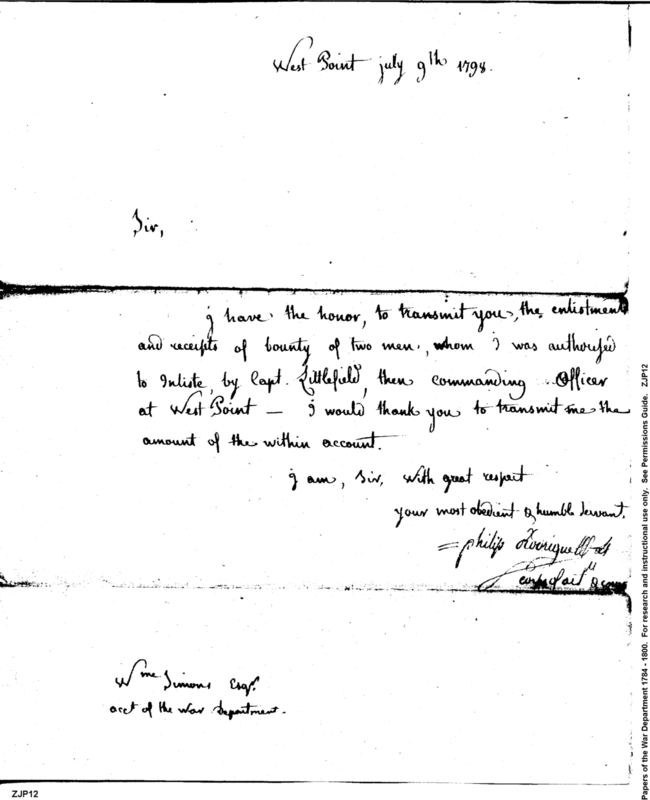 West Point july 9th 1798.
Sir,
I have the honor, to transmit you, the enlistment
and receipts of bounty of two men, whom I was authorised
to Inliste, by Capt. Littlefield, then commanding Officer
at West Point — I would thank you to transmit me the
amount of the within account.
I am, Sir, with great respect
your most obedient & humble Servant.
philip
Wme Simons Esqr.
acct of the War Department.
ZJP12
Papers of the War Department 1784 - 1800. For research and instructional use only. See Permissions Guide. ZJP12